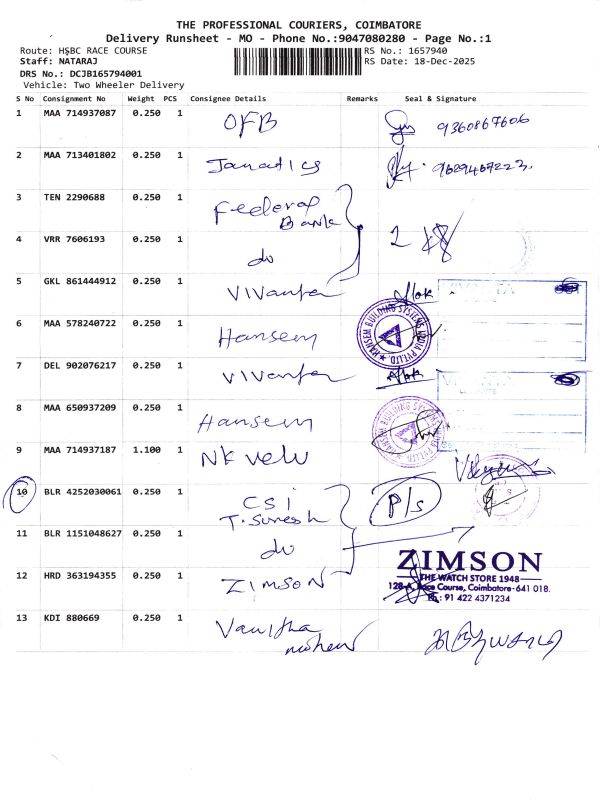 THE PROFESSIONAL COURIERS, COIMBATORE
Delivery Runsheet - MO - Phone No.:9047080280 - Page No.:1
Route: HSBC RACE COURSE RS No.: 1657940
Staff: NATARAJ RS Date: 18-Dec-2025
DRS No.: DCJB165794001
Vehicle: Two Wheeler Delivery
S No Consignment No Weight PCS Consignee Details Remarks Seal & Signature
1 MAA 714937087 0.250 1 OFB 9360867606
2 MAA 713401802 0.250 1 Janatics 9629467223.
3 TEN 2290688 0.250 1 Federal
Bank
4 VRR 7606193 0.250 1 do 2
5 GKL 861444912 0.250 1 VIVanta
6 MAA 578240722 0.250 1 Hansem
HANSEM BUILDING SYSTEMS INDIA PVT.LTD.
7 DEL 902076217 0.250 1 VIVanta
8 MAA 650937209 0.250 1 Hansem
9 MAA 714937187 1.100 1 NK velu
10 BLR 4252030061 0.250 1 CSI P/s
T. Suresh
11 BLR 1151048627 0.250 1 do
ZIMSON
THE WATCH STORE 1948
12 HRD 363194355 0.250 1 ZIMSON
128-A, Race Course, Coimbatore-641 018.
Ph.: 91 422 4371234
13 KDI 880669 0.250 1 Vanitha
mohan